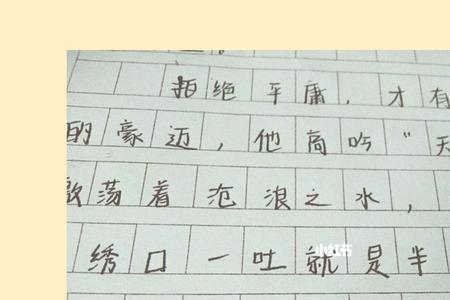 拒绝平庸，才有
的豪迈，他高吟“天
激荡着沧浪之水，
绣口一吐就是半
小红书